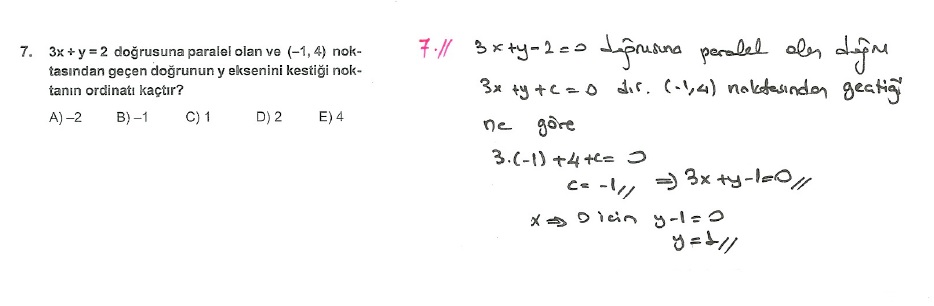 7. 3x + y = 2 doğrusuna paralel olan ve (–1, 4) nok-
tasından geçen doğrunun y eksenini kestiği nok-
tanın ordinatı kaçtır?
A) –2 B) –1 C) 1 D) 2 E) 4
7.// 3x+y-2=0 doğrusuna paralel olan doğru
3x+y+c=0 dır. (-1,4) noktasından geçtiği
ne göre
3.(-1)+4+c=0
c=-1// ⇒ 3x+y-1=0//
x ⇒ 0 için y-1=0
y=1//